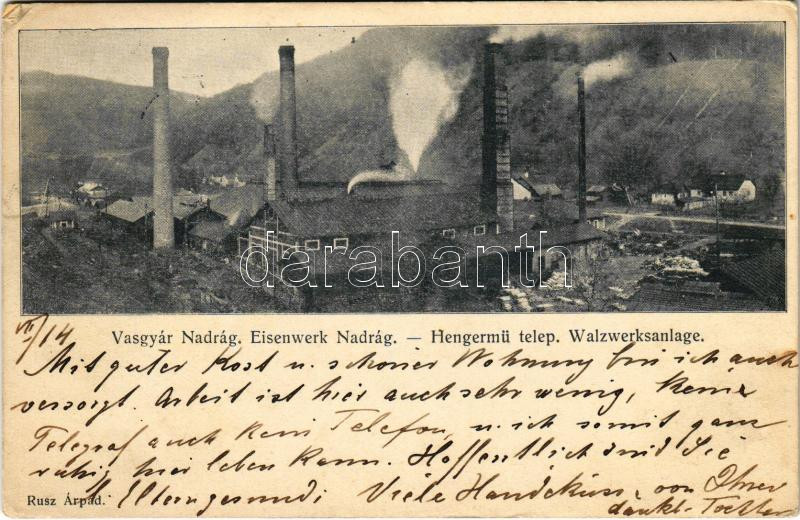 darabanth
Vasgyár Nadrág. Eisenwerk Nadrág. — Hengermű telep. Walzwerksanlage.
VII/14
Mit guter Kost u. schöner Wohnung bin ich auch
versorgt. Arbeit ist hier auch sehr wenig, Keine
Telegraf auch Kein Telefon, u. ich somit ganz
ruhig hier leben Kann. Hoffentlich sind Sie
Eltern gesund! Viele Handküsse von Ihrer
dankb. Tochter
Rusz Árpád.